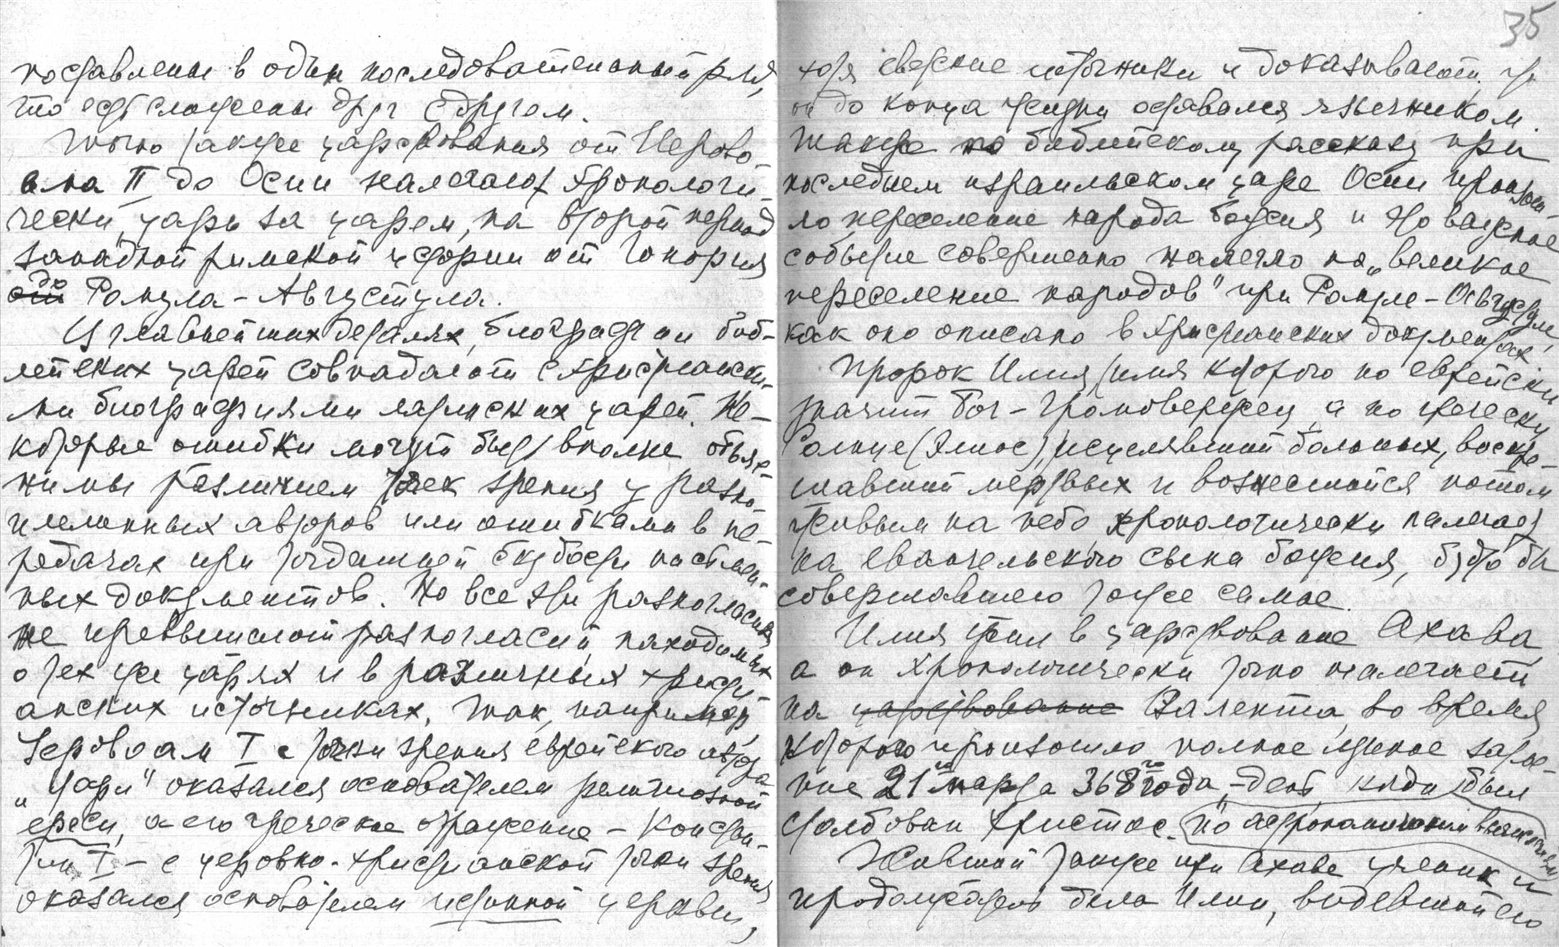 поставлены в один последовательный ряд,
то есть сложены друг с другом.
Точно также царствования от Иерово-
ама II до Осии налегают хронологи-
чески, царь за царем, на второй период
западной римской истории от Гонория
до Ромула-Августула.
И в главнейших деталях, биографии биб-
лейских царей совпадают с христиански-
ми биографиями латинских царей. Не-
которые ошибки могут быть вполне объяс-
нимы различием точек зрения у разно-
племенных авторов или ошибками в пе-
редачах при тогдашней скудости письмен-
ных документов. Но все эти разногласия
не превышают разногласий, находимых
о тех же царях и в различных христи-
анских источниках. Так, например,
Иеровоам I с точки зрения еврейского автора
„Цари" оказался основателем религиозной
ереси, а его греческое отражение – Констан-
тин I – с церковно-христианской точки зрения
оказался основателем истинной церкви,
35
хотя светские источники и доказывают, что
он до конца жизни оставался язычником.
Также по библейскому рассказу при
последнем израильском царе Осии произош-
ло переселение народа божия и это важное
событие совершенно налегло на „великое
переселение народов" при Ромуле-Августуле,
как оно описано в христианских документах
Пророк Илия (имя которого по еврейски
значит Бог-громовержец, а по гречески
Солнце (Элиос)), исцелявший больных, воскре-
шавший мертвых и вознесшийся потом
живым на небо хронологически налегает
на евангельского сына божия, будто бы
совершавшего тоже самое.
Илия жил в царствование Ахава
а он хронологически точно налегает
на царствование Валента, во время
которого произошло полное лунное затме-
ние 21го марта 368го года, – день, когда был
столбован Христос по астрономическим вычислениям
Живший также при Ахаве ученик и
продолжатель дела Илии, видевший его